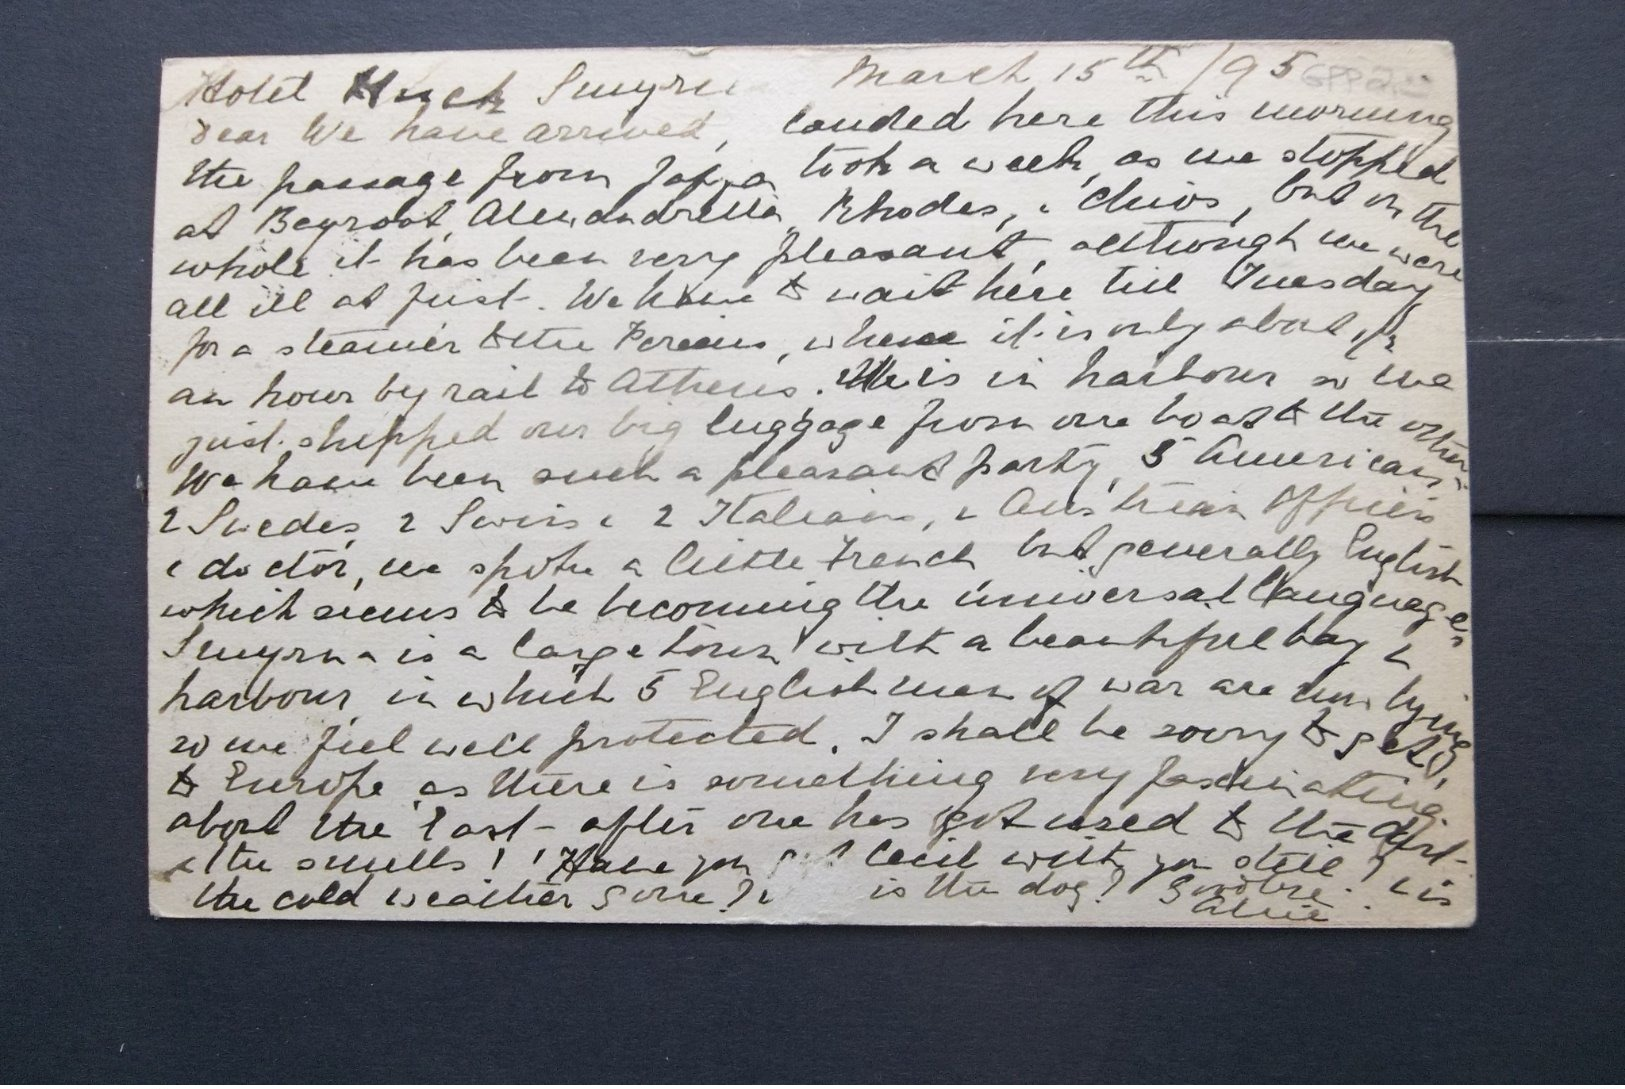 Hotel Huck Smyrna March 15th /95
Dear We have arrived, landed here this morning
the passage from Jaffa took a week, as we stopped
at Beyroot, Alexandretta, Rhodes, & Chios, but on the
whole it has been very pleasant, although we were
all ill at first. We have to wait here till Tuesday
for a steamer to the Pireius, where it is only about 1/2
an hour by rail to Athens. is in harbour so we
just shipped our big luggage from one boat to the other.
We have been such a pleasant party, 5 Americans,
2 Swedes, 2 Swiss & 2 Italians, & Austrian Officers
& doctor, we spoke a little French but generally English
which seems to be becoming the universal language.
Smyrna is a large town with a beautiful bay &
harbour in which 5 English men of war are now lying
so we feel well protected. I shall be sorry to get
to Europe as there is something very fascinating
about the East - after one has got used to the dirt -
& the smells! Have you got Cecil with you still? & is
the cold weather gone? & is the dog? Goodbye.
Alice